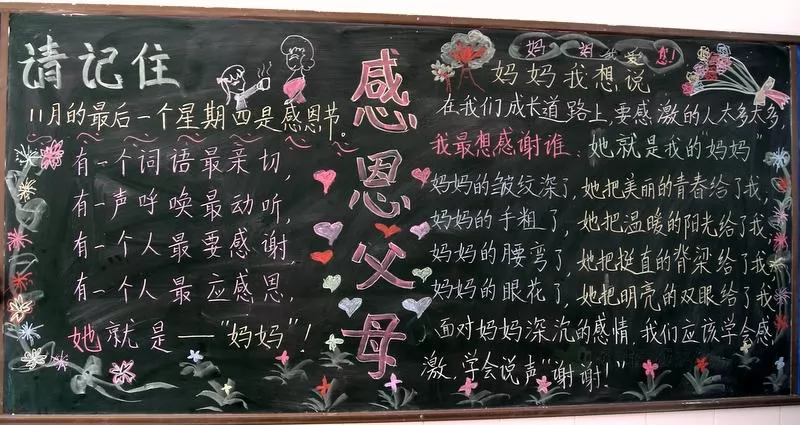 请记住
11月的最后一个星期四是感恩节。
有一个词语最亲切,
有一声呼唤最动听,
有一个人最要感谢
有一个人最应感恩,
她就是——“妈妈”!
感恩父母
妈妈我爱您!
妈妈我想说
在我们成长道路上,要感激的人太多太多,
我最想感谢谁:她就是我的“妈妈”
妈妈的皱纹深了,她把美丽的青春给了我,
妈妈的手粗了,她把温暖的阳光给了我,
妈妈的腰弯了,她把挺直的脊梁给了我,
妈妈的眼花了,她把明亮的双眼给了我,
面对妈妈深沉的感情,我们应该学会感
激,学会说声“谢谢!”